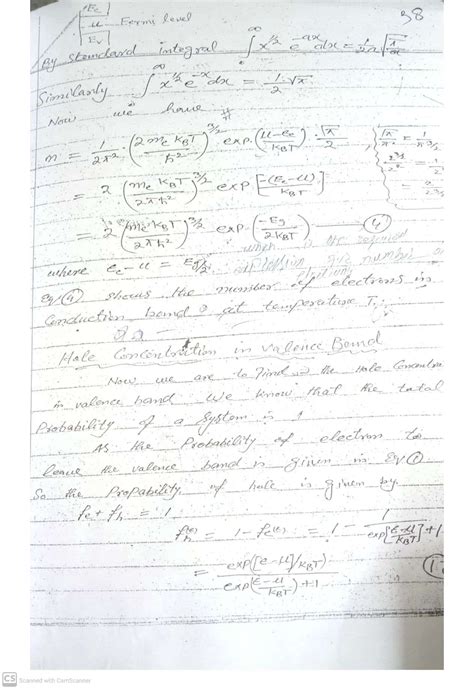 Ec
38
μ Fermi level
Ev
By standard integral ∫₀^∞ x^1/2 e^-ax dx = 1/2a √(π/a)
Similarly ∫₀^∞ x^1/2 e^-x dx = 1/2 √π
Now we have
n = 1/2π² · (2me KBT/ħ²)^3/2 exp.(μ-εc/KBT) · √π/2
= 2 (me KBT/2πħ²)^3/2 exp[-(Ec-μ)/KBT]
= 2 (me KBT/2πħ²)^3/2 exp.(-Eg/2KBT)
where εc-μ = Eg/2. which is the required
number of
Eq (4) shows the number of electrons in
Conduction band at temperature T.
Hole Concentration in valence Band
Now we are to find the Hole Concentra
in valence band. We know that the total
Probability of a System is 1
As the Probability of electron to
leave the valence band is given in Eq (1)
So the Propability of hole is given by
fe + fh = 1
fh(ε) = 1 - fe(ε) = 1 - 1/exp[ε-μ/KBT]+1
= exp([ε-μ]/KBT)/exp(ε-μ/KBT)+1
CS Scanned with CamScanner